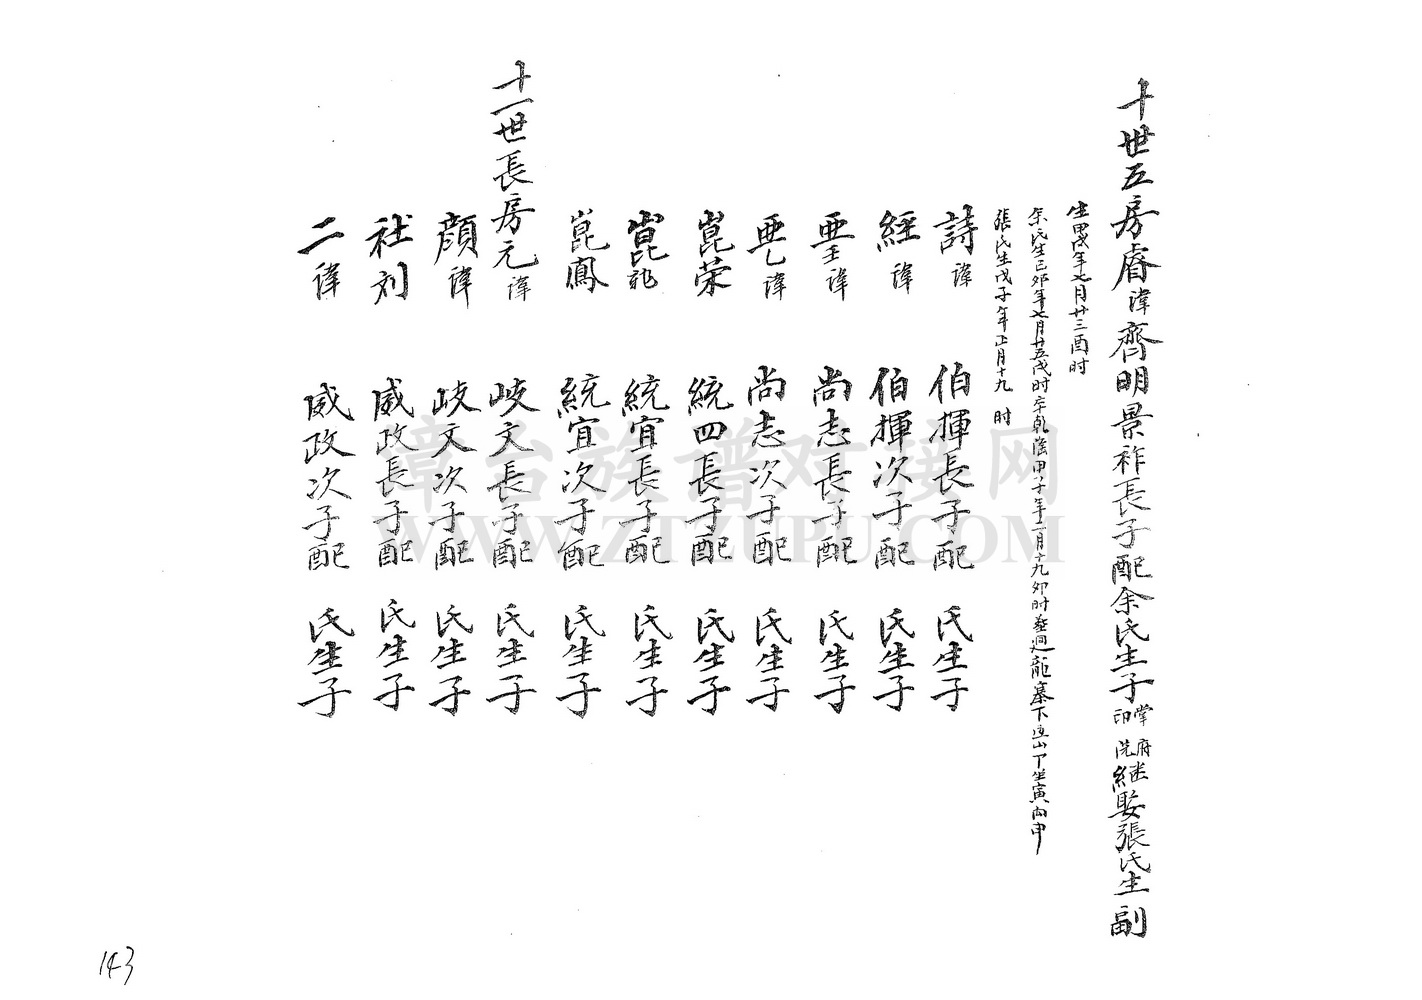 十世五房睿諱齊明景祚長子配余氏生子掌印府洗继娶張氏生副
生甲戌年七月廿三酉时
余氏生己卯年七月廿五戌时卒乾隆甲子年二月十九卯时葬迴龍墓下山丁坐寅向申
張氏生戊子年正月十九 时
詩諱 伯揮長子配 氏生子
經諱 伯揮次子配 氏生子
亜王諱 尚志長子配 氏生子
亜乙諱 尚志次子配 氏生子
崑荣 統四長子配 氏生子
崑 統宜長子配 氏生子
崑鳳 統宜次子配 氏生子
十一世長房元諱 岐文長子配 氏生子
顔諱 岐文次子配 氏生子
社刘 威政長子配 氏生子
二諱 威政次子配 氏生子
143
漳台族谱对接网
WWW.ZTZUPU.COM